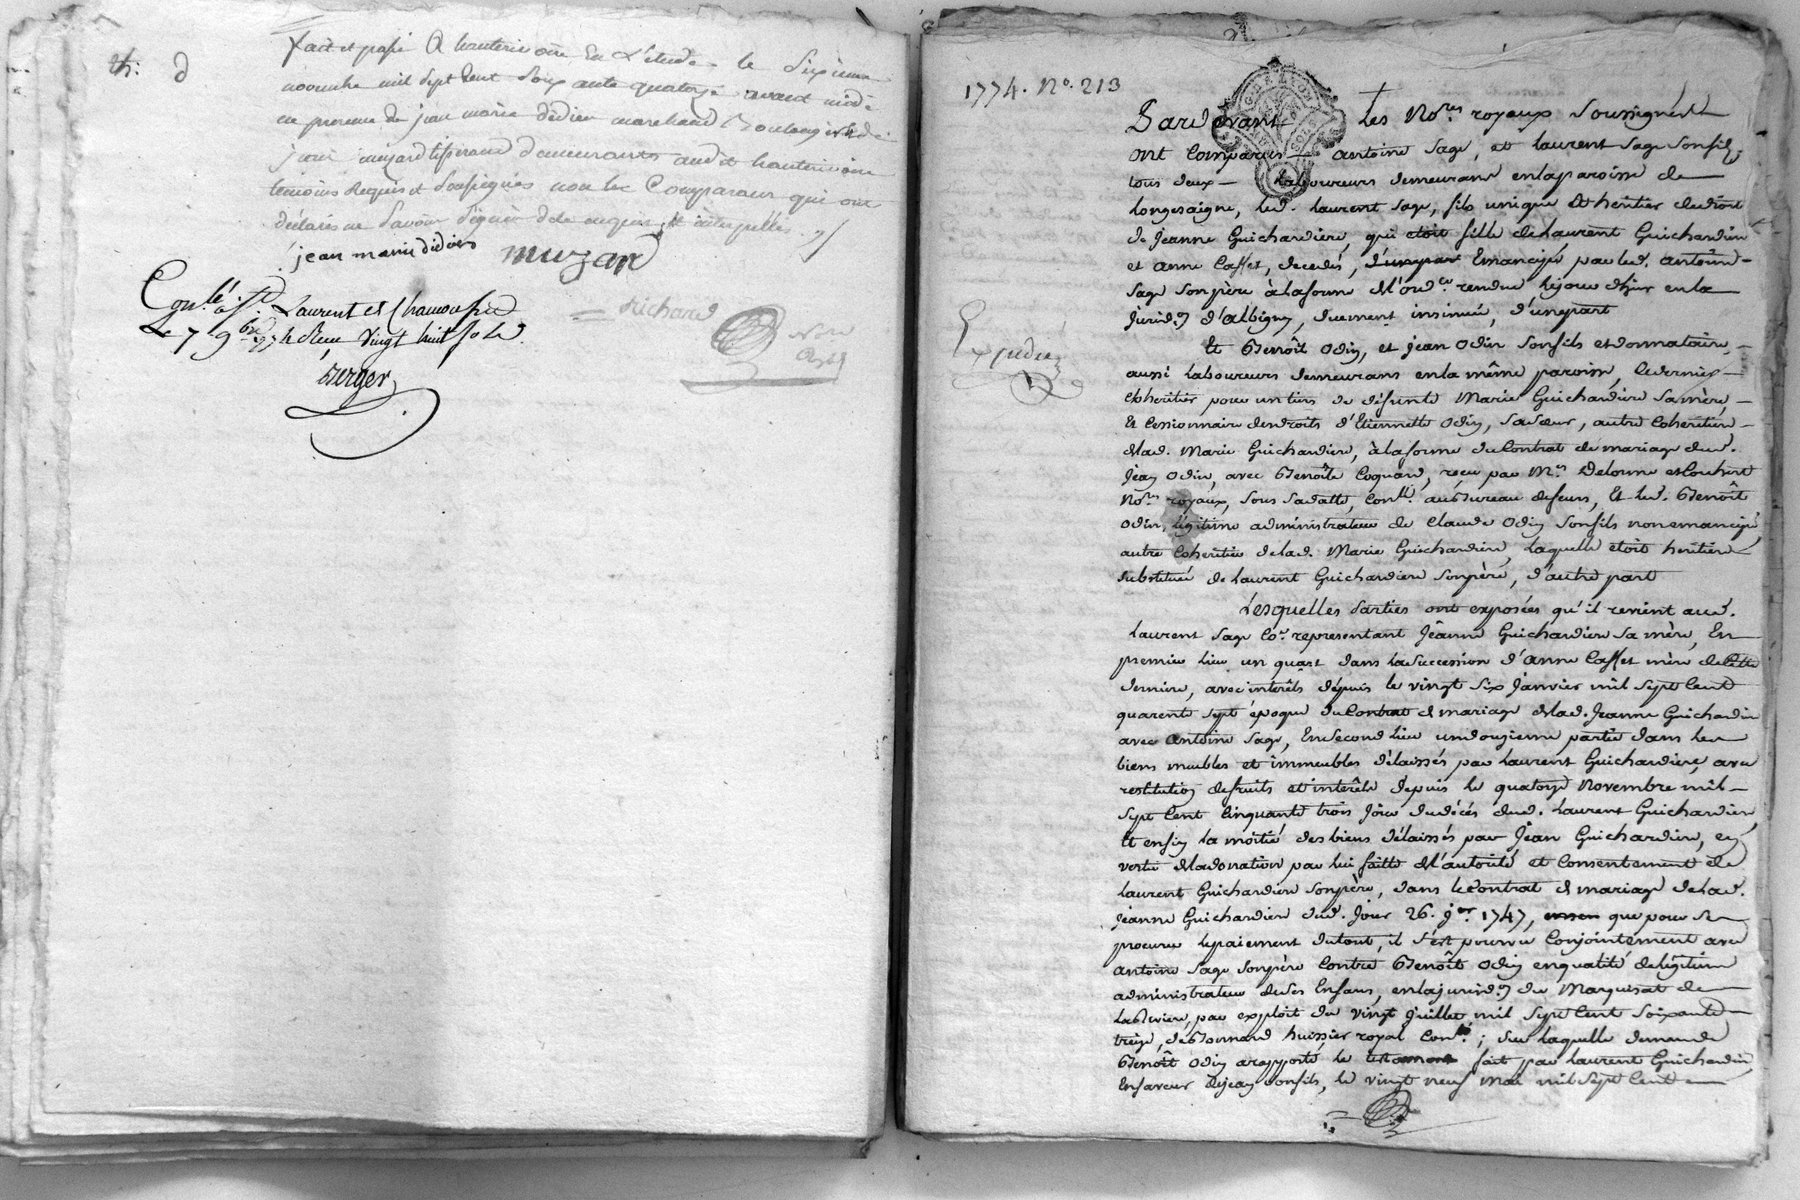 fait et passé a hauterivoire en l'étude le sixieme
novembre mil sept cent soix ante quatorze avant midi
en presence de jean marie didier marchand Boulanger et de
jean muzard tisserand demeurants aud.t hauterivoire
temoins Requis et soussignés non les Comparans qui ont
declarés ne savoir signer de ce enquis et interpellés
jean marie didier muzard
Con.lé à s.t Laurent de Chamousset
Le 7 9.bre 1774 Reçu vingt huit sols
Berger
Richard No.re
Royal
1774. No. 213
Pardevant Les No.res royaux Soussignés
ont Comparus antoine Sage, et laurent Sage Son fils,
tous deux laboureurs demeurans en la paroisse de
Longesaigne, led. laurent Sage, fils unique et heritier de droit
de Jeanne Guichardiere, qui etoit fille de Laurent Guichardier
et anne Casset, decedés, d'une part Emancipé par led. antoine
Sage Son père à la forme de l'ord.ce rendue le jour d'hier en la
Jurid.on d'albigny, duement insinuée, d'une part
Et Benoît Odin, et Jean Odin Son fils et donnataire,
aussi laboureurs demeurans en la même paroisse, le dernier
Coheritier pour un tiers de défunte Marie Guichardiere Sa mère,
Et Cessionnaire des droits d'Etiennette Odin, Sa Sœur, autre Coheritiere
de lad. Marie Guichardiere, à la forme du Contrat de mariage dud.
Jean Odin, avec Benoîte Coquard, reçu par M.es Delorme et
No.res royaux, Sous Sa datte, Con.lé au Bureau de feurs, Et led. Benoît
Odin, légitime administrateur de Claude Odin Son fils non emancipé,
autre Coheritier de lad. Marie Guichardiere, laquelle etoit heritiere
Substituée de Laurent Guichardiere Son père, d'autre part
Lesquelles Parties ont exposées qu'il revient aud.
Laurent Sage Co.e representant Jeanne Guichardiere Sa mère, En
premier lieu un quart dans la Succession d'anne Casset mère de Cette
derniere, avec intérêts depuis le vingt Six Janvier mil Sept Cent
quarente Sept époque du Contrat de mariage de lad. Jeanne Guichardiere
avec antoine Sage, En Second Lieu un douzieme partie dans les
biens meubles et immeubles délaissés par Laurent Guichardiere, avec
restitution de fruits et intérêts depuis le quatorze Novembre mil
Sept Cent Cinquante trois Jour du décés dud. Laurent Guichardier,
Et enfin la moitié des biens délaissés par Jean Guichardier, en
vertu de la donation par lui faitte de l'autorité et Consentement de
Laurent Guichardier Son père, dans le Contrat de mariage de lad.
Jeanne Guichardiere dud. Jour 26. j.er 1747, que pour Se
procurer le paiement du tout, il S'est pourvu Conjointement avec
antoine Sage Son père Contre Benoît Odin en qualité de légitime
administrateur de Ses Enfans, en la jurid.on du Marquisat de
La Riviere, par exploit du vingt Juillet mil Sept Cent Soixante
treize, de Bonnand huissier royal Con.lé; Sur laquelle demande
Benoît Odin a rapporté le testament fait par Laurent Guichardier
En faveur de Jean Son fils, le vingt neuf Mai mil Sept Cent
Expediée